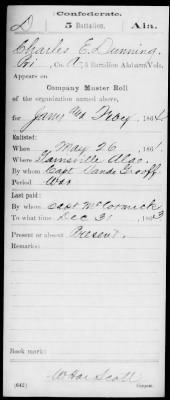 Confederate.
D 5 Battalion. Ala.
Charles E. Dunning
Pri, Co. A, 5 Battalion Alabama Vols.
Appears on
Company Muster Roll
of the organization named above,
for Jan & Feby, 1864.
Enlisted:
When May 26, 1861.
Where Ala.
By whom Capt Vande Graaff
Period War
Last paid:
By whom Capt McCormick
To what time Dec 31, 1863
Present or absent Present.
Remarks:
Book mark:
Scott
(642) Copyist.